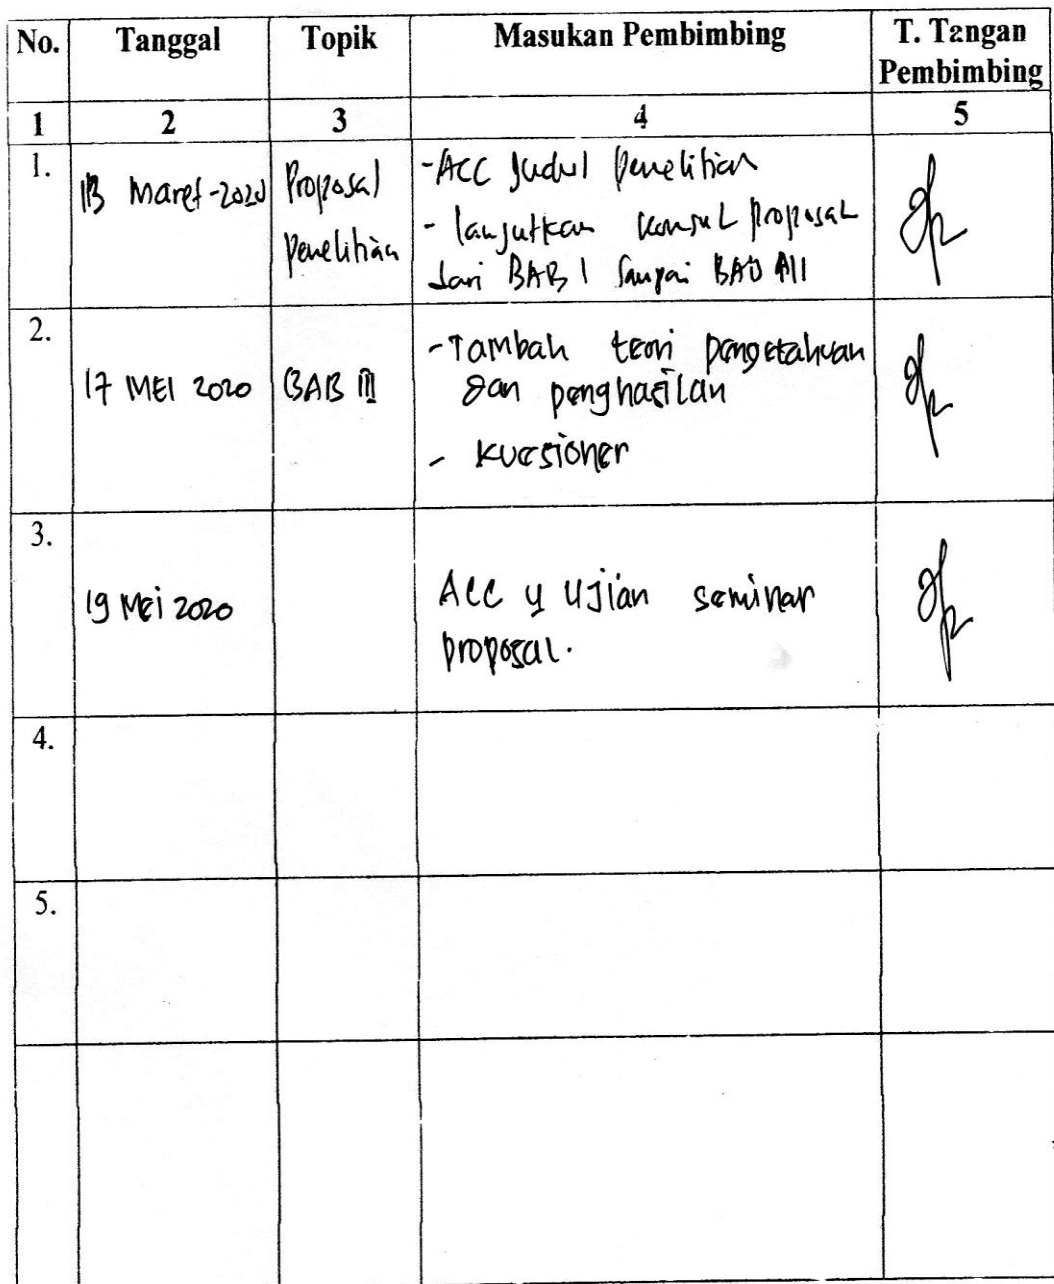 No. Tanggal Topik Masukan Pembimbing T. Tangan
Pembimbing
1 2 3 4 5
1.
13 Maret-2020 Proposal
Penelitian
-ACC Judul Penelitian
- lanjutkan konsul proposal
dari BAB I sampai BAB III
2.
17 MEI 2020 BAB III
-Tambah teori pengetahuan
dan penghasilan
- kuesioner
3.
19 Mei 2020
ACC Ujian seminar
proposal.
4.
5.